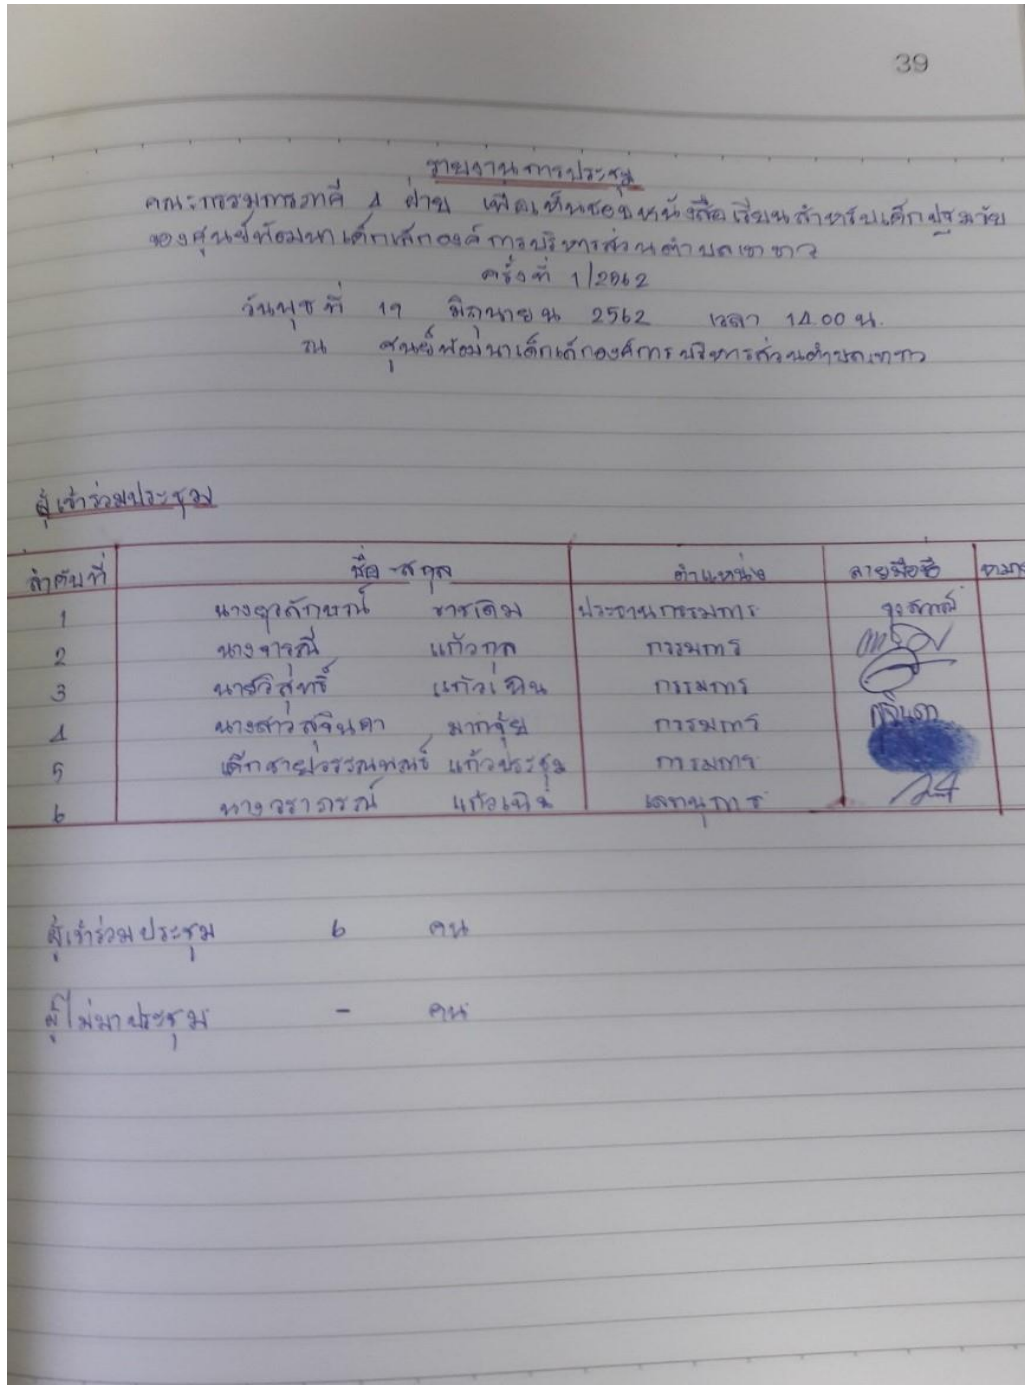 39
รายงานการประชุม
คณะกรรมการภาคี 4 ฝ่าย เพื่อเห็นชอบหนังสือเรียนสำหรับเด็กปฐมวัย
ของศูนย์พัฒนาเด็กเล็กองค์การบริหารส่วนตำบล
ครั้งที่ 1/2562
วันพุธที่ 19 มิถุนายน 2562 เวลา 14.00 น.
ณ ศูนย์พัฒนาเด็กเล็กองค์การบริหารส่วนตำบล
ผู้เข้าร่วมประชุม
ลำดับที่ ชื่อ-สกุล ตำแหน่ง ลายมือชื่อ
1 ประธานกรรมการ
2 นางจารุณี แก้วกุล กรรมการ
3 นายวิสุทธิ์ แก้วเนิน กรรมการ
4 นางสาวสุจินดา มากจุ้ย กรรมการ สุจินดา
5 แก้วประชุม กรรมการ
6 นางวราภรณ์ แก้วเนิน เลขานุการ
ผู้เข้าร่วมประชุม 6 คน
ผู้ไม่มาประชุม - คน